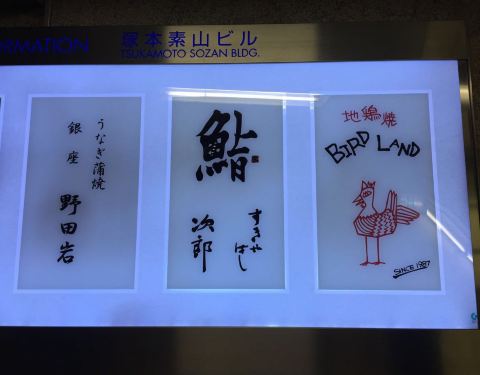 RMATION
塚本素山ビル
TSUKAMOTO SOZAN BLDG.
うなぎ蒲焼
銀座
野田岩
鮨
すきやばし
次郎
地鶏焼
BIRD LAND
SINCE 1987